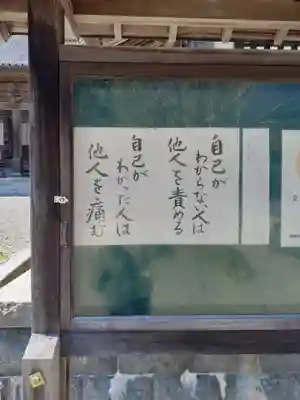 自己が
わからない人は
他人を責める
自己が
わかった人は
他人を痛む